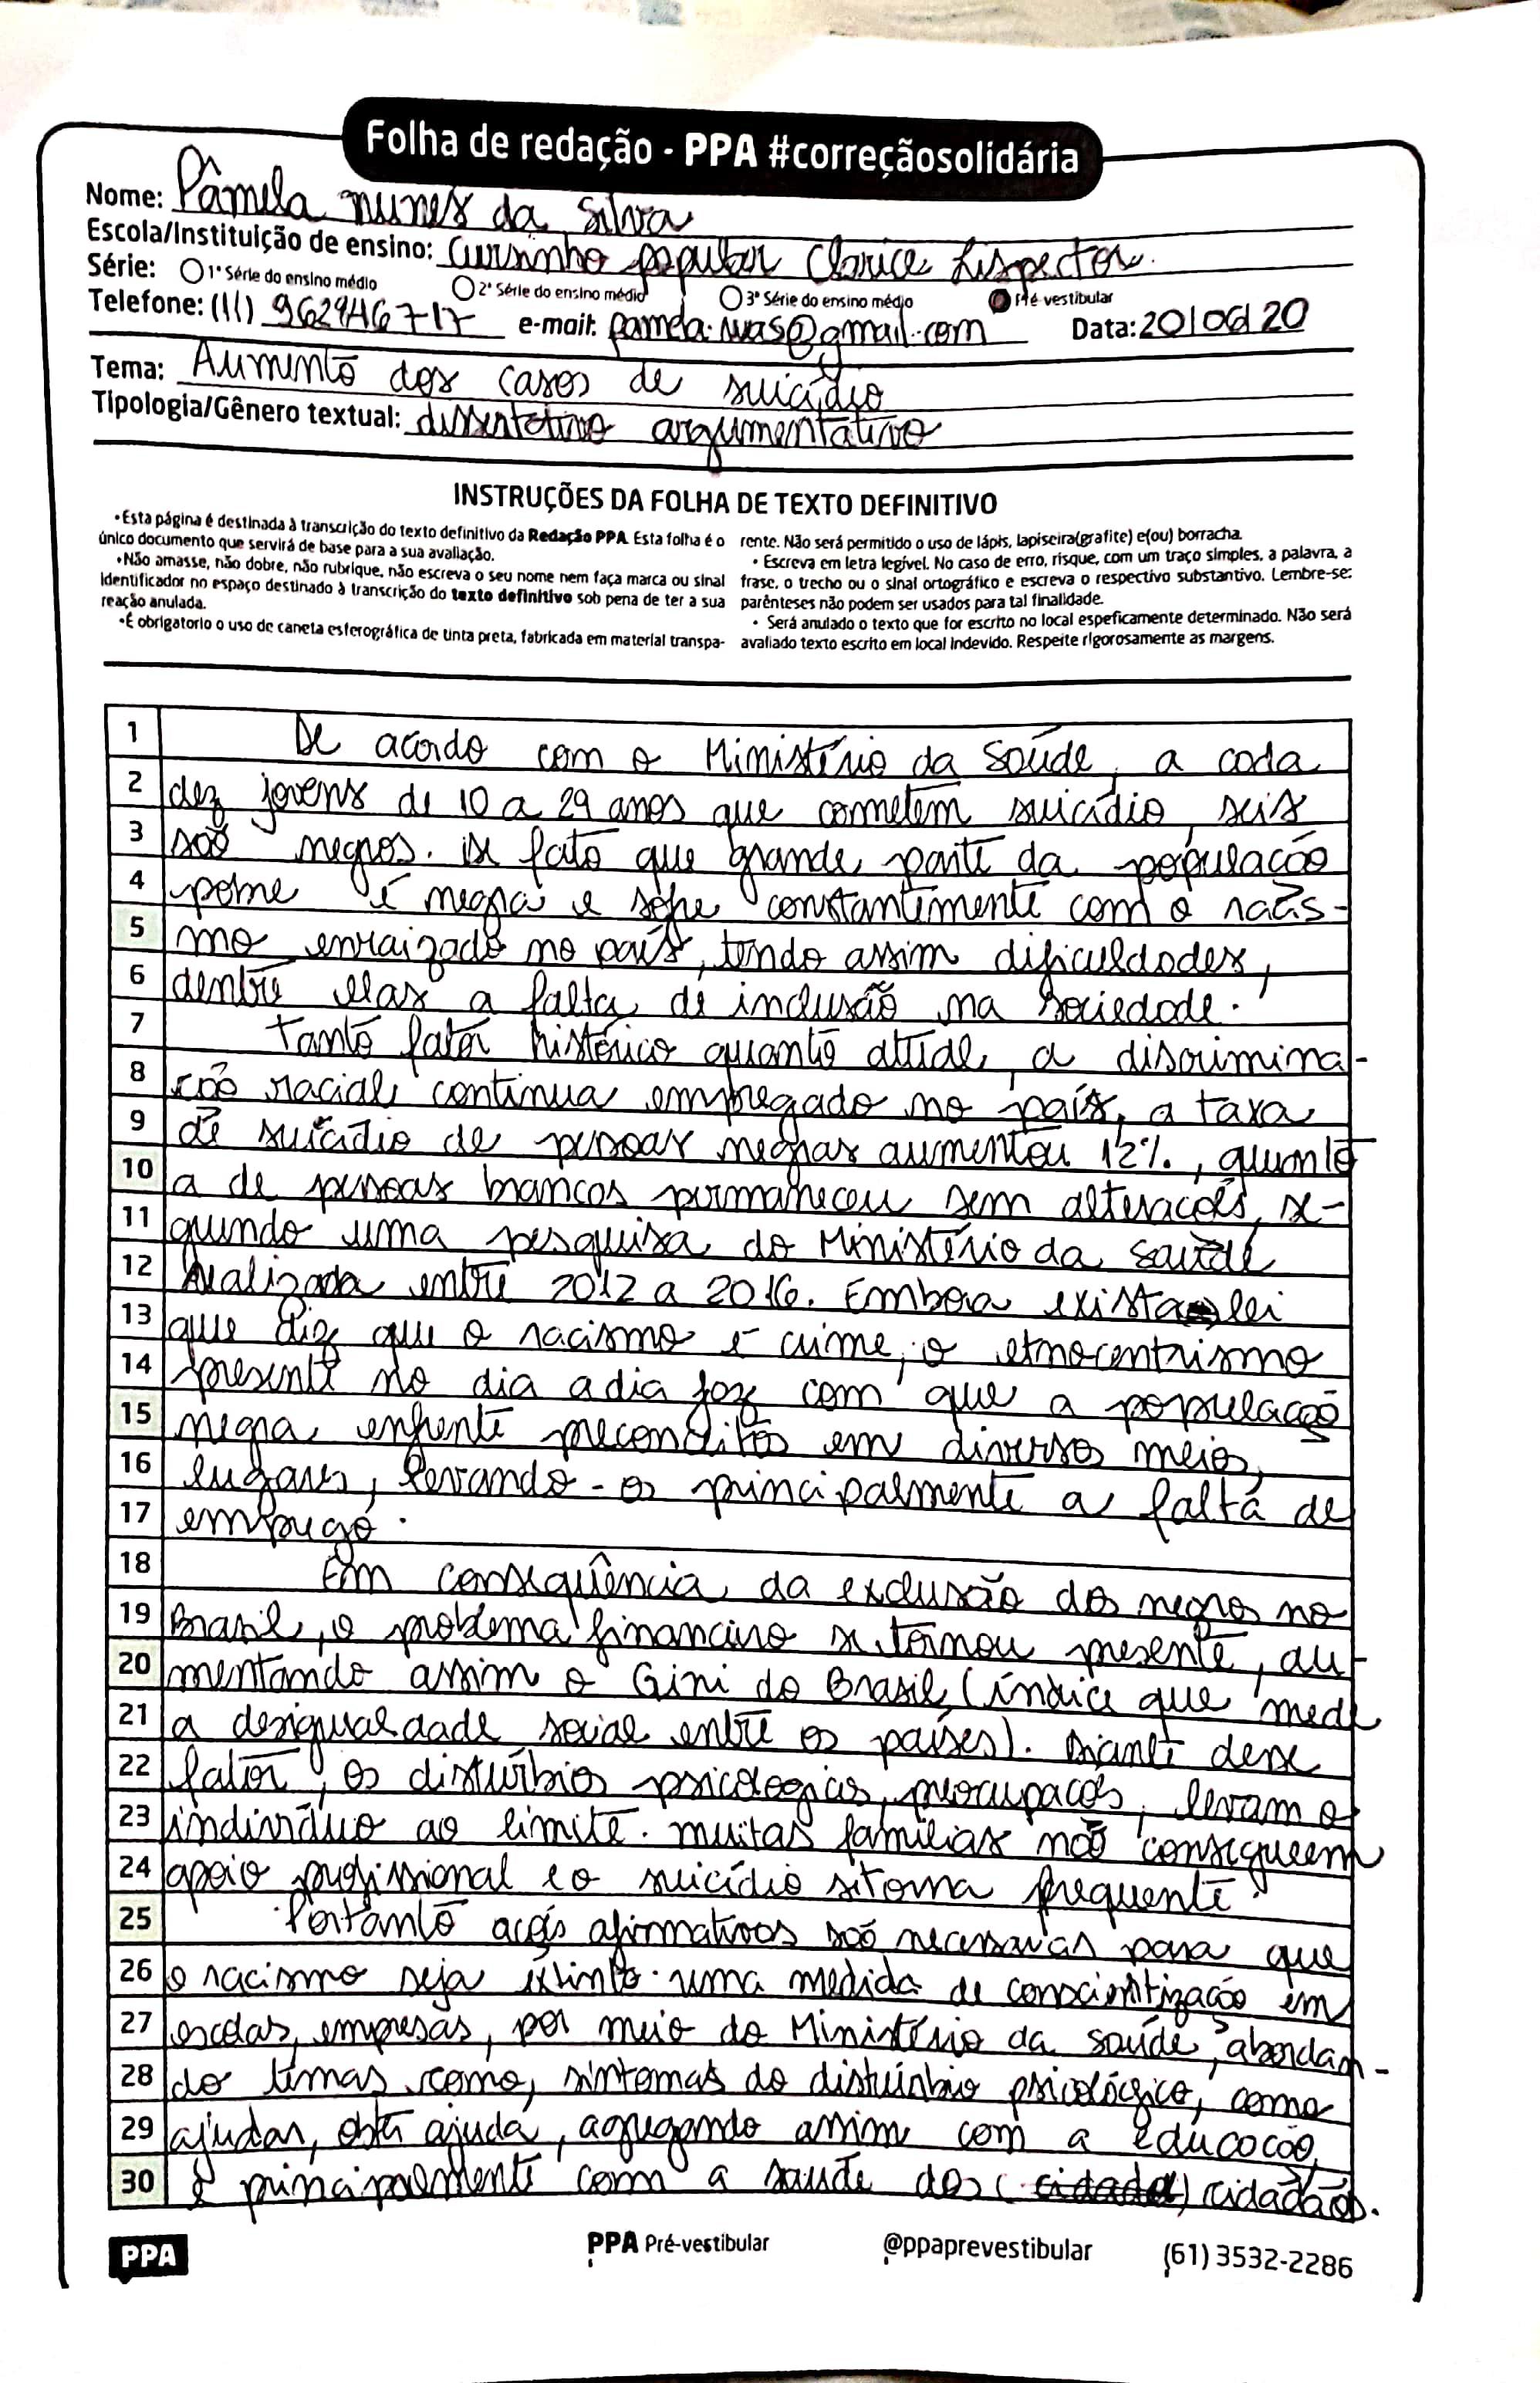 Folha de redação - PPA #correçãosolidária
Nome: Pâmela nunes da Silva
Escola/Instituição de ensino: Cursinho popular Clarice Lispector.
Série: 1ª Série do ensino médio 2ª Série do ensino médio 3ª Série do ensino médio Pré vestibular
Telefone: (11) 962946717 e-mail: pamela.nvas@gmail.com Data: 20/06/20
Tema: Aumento dos casos de suicídio
Tipologia/Gênero textual: dissertativo argumentativo
INSTRUÇÕES DA FOLHA DE TEXTO DEFINITIVO
•Esta página é destinada à transcrição do texto definitivo da Redação PPA. Esta folha é o
único documento que servirá de base para a sua avaliação.
•Não amasse, não dobre, não rubrique, não escreva o seu nome nem faça marca ou sinal
identificador no espaço destinado à transcrição do texto definitivo sob pena de ter a sua
reação anulada.
•É obrigatorio o uso de caneta esferográfica de tinta preta, fabricada em material transpa-
rente. Não será permitido o uso de lápis, lapiseira(grafite) e(ou) borracha.
• Escreva em letra legível. No caso de erro, risque, com um traço simples, a palavra, a
frase, o trecho ou o sinal ortográfico e escreva o respectivo substantivo. Lembre-se:
parênteses não podem ser usados para tal finalidade.
• Será anulado o texto que for escrito no local espeficamente determinado. Não será
avaliado texto escrito em local indevido. Respeite rigorosamente as margens.
1 De acordo com o Ministério da Saúde, a cada
2 dez jovens de 10 a 29 anos que cometem suicídio, seis
3 são negros. De fato que grande parte da população
4 pobre é negra e sofre constantemente com o racis-
5 mo enraizado no país, tendo assim dificuldades,
6 dentre elas a falta de inclusão na sociedade.
7 Tanto fator histórico quanto atual, a discrimina-
8 ção racial continua empregado no país, a taxa
9 de suicídio de pessoas negras aumentou 12%, quanto
10 a de pessoas brancas permaneceu sem alterações, se-
11 gundo uma pesquisa do Ministério da saúde
12 realizada entre 2012 a 2016. Embora exista lei
13 que diz que o racismo é crime, o etnocentrismo
14 presente no dia a dia faz com que a população
15 negra enfrente preconceitos em diverso meios,
16 lugares, levando-os principalmente a falta de
17 emprego.
18 Em consequência da exclusão dos negros no
19 Brasil, o problema financeiro se tornou presente, au-
20 mentando assim o Gini do Brasil (índice que mede
21 a desigualdade social entre os países). Diante desse
22 fator, os distúrbios psicologicos, preocupações, levam o
23 indivíduo ao limite. muitas famílias não conseguem
24 apoio profissional e o suicídio se torna frequente.
25 Portanto ações afirmativas são necessarias para que
26 o racismo seja extinto. uma medida de conscientização em
27 escolas, empresas, por meio do Ministério da saúde, abordan-
28 do temas como, sintomas do distúrbio psicológico, como
29 ajudar, obter ajuda, agregando assim com a educação,
30 e principalmente com a saude dos (cidada) cidadãos.
PPA PPA Pré-vestibular @ppaprevestibular (61) 3532-2286